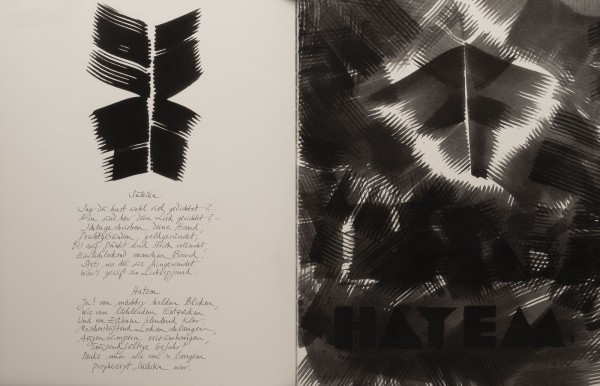 Suleika
Sag du hast wohl viel gedichtet?
Hin und her dein Lied gerichtet? -
Schöne Schrift von deiner Hand,
Prachtgebunden, goldgerändet,
Bis auf Punkt und Strich vollendet,
Zierlich lockend manchen Band.
Stets wo du sie hingewendet
War's gewiß ein Liebespfand.
Hatem
Ja! von mächtig holden Blicken,
Wie von lächlendem Entzücken
Und von Zähnen blendend klar.
Moschusduftend Locken-Schlangen,
Augenwimpern reizumhangen,
Tausendfältige Gefahr!
Denke nun wie von so langem
Prophezeyt Suleika war.
HATEM